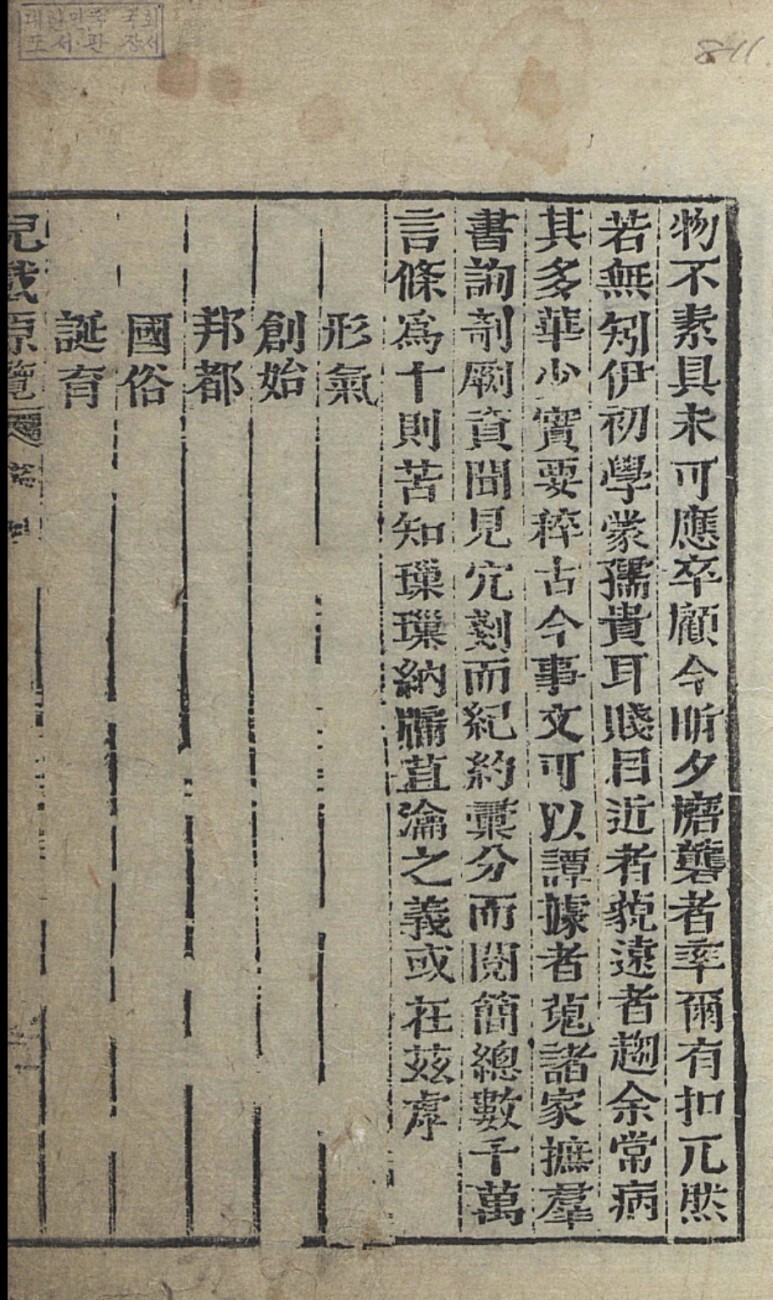 物不素具未可應卒顧今昕夕磨礱者率爾有扣兀然
若無矧伊初學蒙孺貴耳賤目近者藐遠者趨余常病
其多華少實要稡古今事文可以譚據者蒐諸家摭羣
書詢剞劂資聞見宂剗而紀約彙分而閱簡總數千萬
言條爲十則苦知璅璅納牖苴瀹之義或在茲虖
形氣
創始
邦都
國俗
誕育
原覽
대한민국 국회
도서관 장서
811